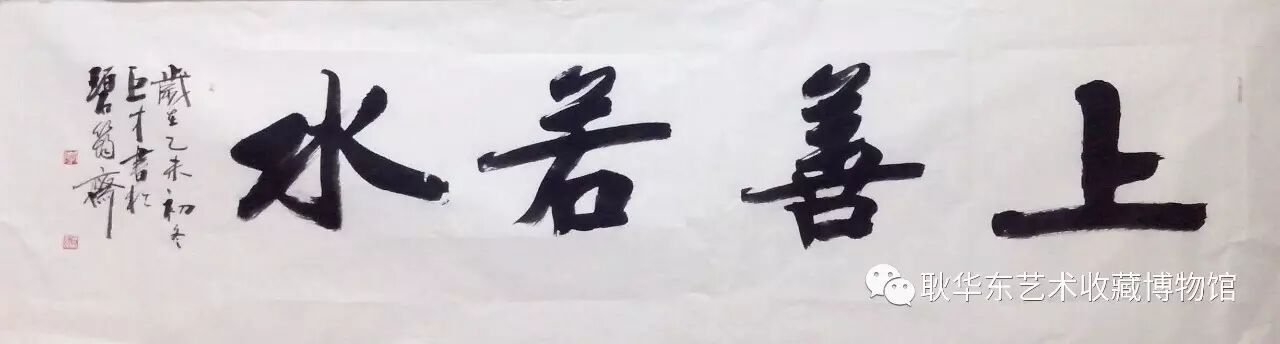 上善若水
歲在乙未初冬
巨才書於
碧翁齋
耿华东艺术收藏博物馆